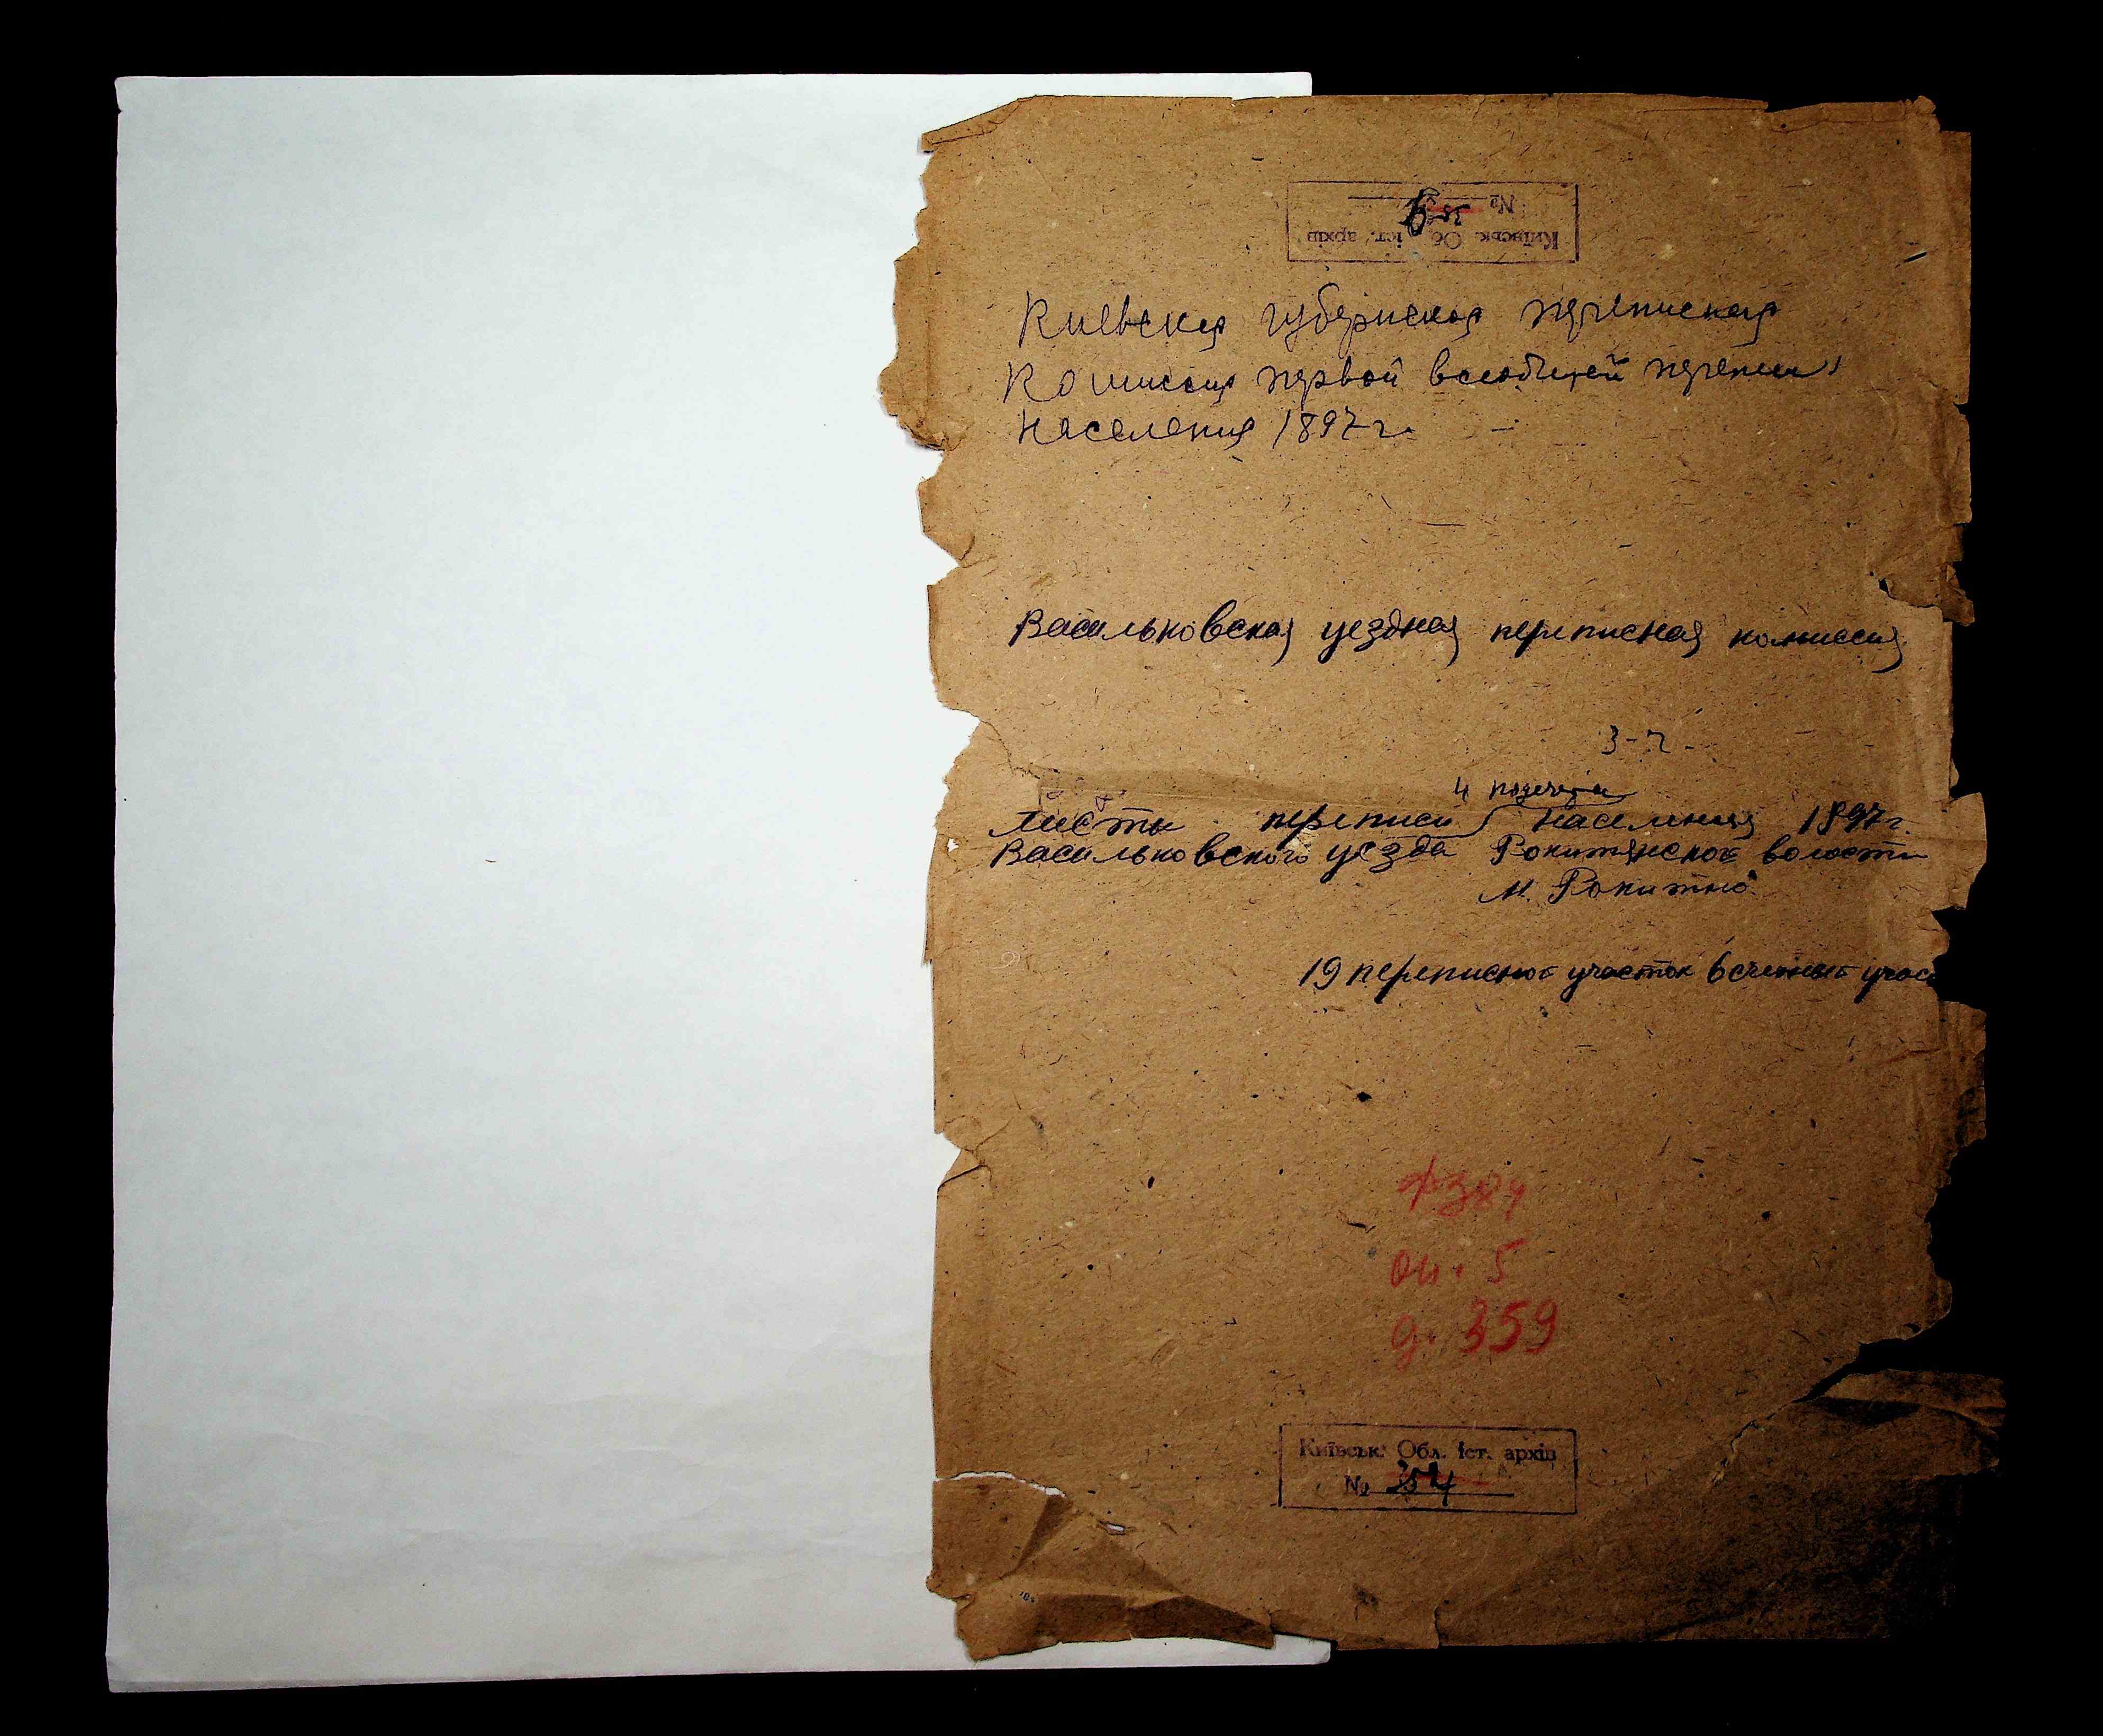 Київськ. Об іст. архів
№
Киевская губернская переписная
Комиссия первой всеобщей переписи
населения 1897 г.
Васильковская уездная переписная комиссия
и подсчёта
Листы переписи населения 1897 г.
Васильковского уезда Рокитянской волости
м. Рокитно
19 переписной участок 6 счетный учас
ф 384
оп. 5
д. 359
Київськ. Обл. іст. архів
№ 354